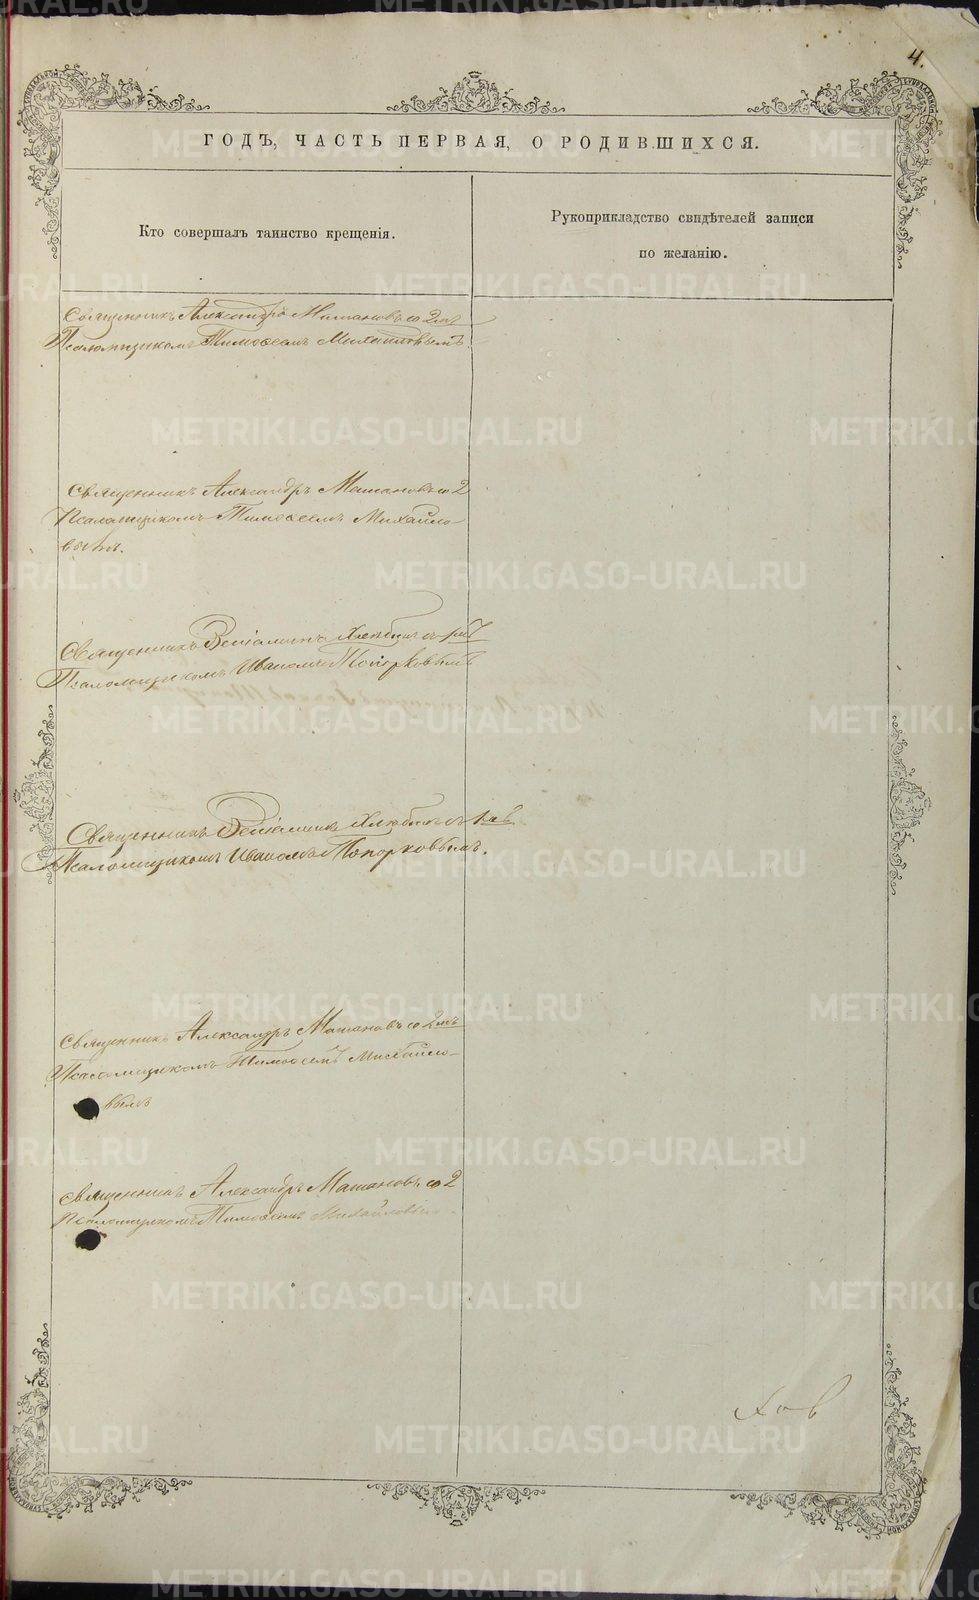 4.
ГОДЪ, ЧАСТЬ ПЕРВАЯ, О РОДИВШИХСЯ.
Кто совершалъ таинство крещенія.
Рукоприкладство свидѣтелей записи
по желанію.
Священникъ Александръ Матановъ со 2мъ
Псаломщикомъ Тимоѳеемъ Михайловымъ
Священникъ Александръ Матановъ со 2
Псаломщикомъ Тимоѳеемъ Михайло-
вымъ.
Священникъ Веніаминъ Хлебинъ съ 1мъ
Псаломщикомъ Иваномъ Топорковымъ
Священникъ Веніаминъ Хлебинъ съ 1мъ
Псаломщикомъ Иваномъ Топорковымъ.
Священникъ Александръ Матановъ со 2мъ
Псаломщикомъ Тимоѳеемъ Михайло-
вымъ
Священникъ Александръ Матановъ со 2
Псаломщикомъ Тимоѳеемъ Михайловымъ.
METRIKI.GASO-URAL.RU